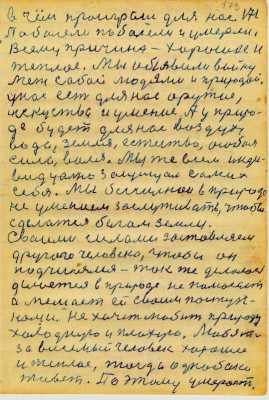 В чём проиграли для нас
Поболели поболели и умерли.
Всему причина - хорошее и
тёплое. Мы объявили войну
меж собой людями и природой.
У нас ест для нас оружие,
искуство и умение. А у приро-
де будет для нас воздух,
вода, земля, естество, особая
сила, воля. Мы же всем инди-
видуально защищаем самих
себя. Мы бессильны в природе
не умением заслуживать, чтобы
сделатся богам земли.
Своими силами заставляем
другого человека, чтобы он
подчинялся - так же
в природе не помогает
а мешает ей своим поступ-
ками. Не хочет любит природу
холодную и плохую. Любят
за весёлый человек хорошее
и тёплое, тогда однобоко
живет. Поэтому умерает.